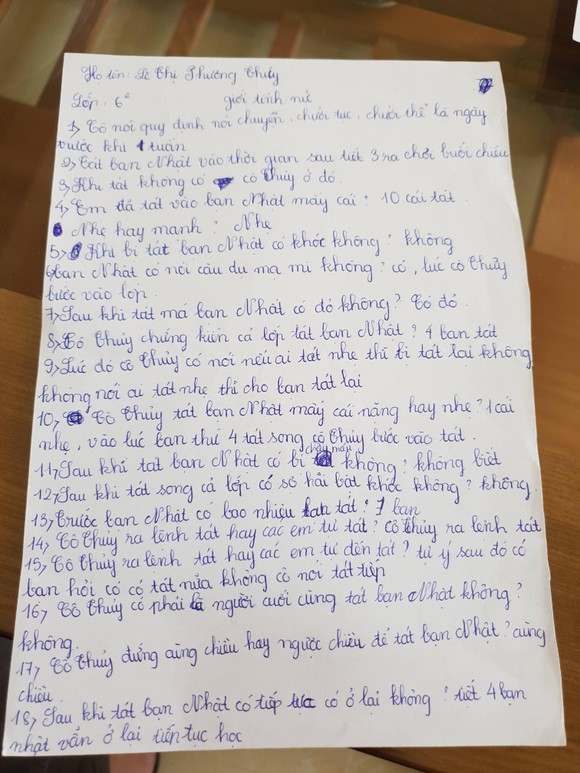 Họ tên: Lê Thị Phương Thúy
Lớp: 6² giới tính nữ
1, Cô nói quy dinh nói chuyện, chưởi tục, chưởi thề là ngày
trước khi 1 tuần
2, Tát bạn Nhật vào thời gian sau tiết 3 ra chơi buổi chiều
3, Khi tát không có cô Thủy ở đó.
4, Em đã tát vào bạn Nhật mấy cái? 10 cái tát.
Nhẹ hay mạnh? Nhẹ
5, Khi bị tát bạn Nhật có khóc không? không
6, bạn Nhật có nói câu du ma mi không? có, lúc cô Thủy
bước vào lớp.
7, Sau khi tát má bạn Nhật có đỏ không? Có đỏ.
8, Cô Thủy chứng kiến cả lớp tát bạn Nhật? 4 bạn tát
9, Lúc đó cô Thủy có nói nếu ai tát nhẹ thì bị tát lại không
không nói ai tát nhẹ thì cho bạn tát lại
10, Cô Thủy tát bạn Nhật mấy cái nặng hay nhẹ? 1 cái
nhẹ, vào lúc bạn thứ 4 tát song cô Thủy bước vào tát.
11, Sau khi tát bạn Nhật có bị chảy máu không? không biết
12, Sau khi tát song cả lớp có sợ hãi bật khóc không? không.
13, Trước bạn Nhật có bao nhiêu bạn tát? 7 bạn
14, Cô Thủy ra lệnh tát hay các em tự tát? Cô Thủy ra lệnh tát
15, Cô Thủy ra lệnh tát hay các em tự đến tát? tự ý sau đó có
bạn hỏi cô có tát nữa không cô nói tát tiếp
16, Cô Thủy có phải là người cuối cùng tát bạn Nhật không?
không.
17, Cô Thủy đứng cùng chiều hay ngược chiều để tát bạn Nhật? cùng
chiều.
18, Sau khi tát bạn Nhật có tiếp tục có ở lại không? tiết 4 bạn
nhật vẫn ở lại tiếp tục học